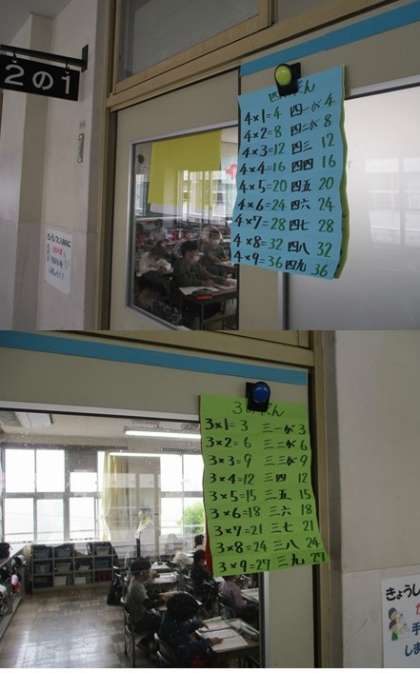 2の1
四のだん
4×1=4 四一が 4
4×2=8 四二が 8
4×3=12 四三 12
4×4=16 四四 16
4×5=20 四五 20
4×6=24 四六 24
4×7=28 四七 28
4×8=32 四八 32
4×9=36 四九 36
3のだん
3×1=3 三一が 3
3×2=6 三二が 6
3×3=9 三三が 9
3×4=12 三四 12
3×5=15 三五 15
3×6=18 三六 18
3×7=21 三七 21
3×8=24 三八 24
3×9=27 三九 27
きょうし
手
しま